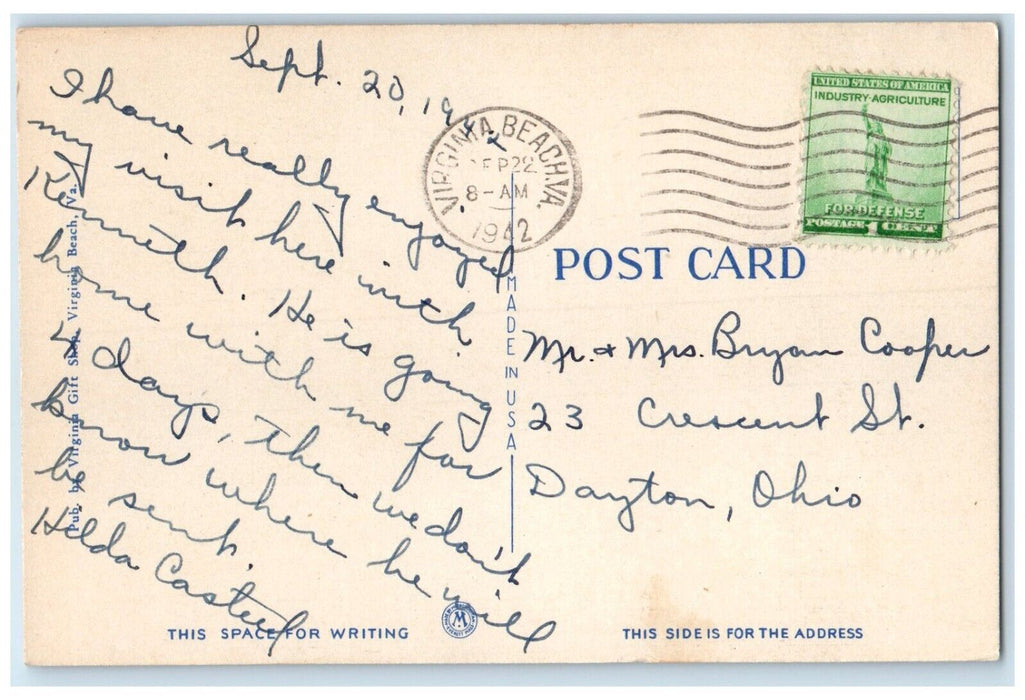 Sept. 20, 1942
I have really enjoyed
my visit here with
Kenneth. He is going
home with me for
4 days, then we don't
know where he will
be sent.
Hilda Casteel
Pub. by Virginia Gift Shop, Virginia Beach, Va.
VIRGINIA BEACH, VA.
SEP 22
8-AM
1942
UNITED STATES OF AMERICA
INDUSTRY-AGRICULTURE
FOR·DEFENSE
POSTAGE 1 CENT
POST CARD
MADE IN USA
Mr. + Mrs. Bryan Cooper
23 Crescent St.
Dayton, Ohio
THIS SPACE FOR WRITING
M
THIS SIDE IS FOR THE ADDRESS